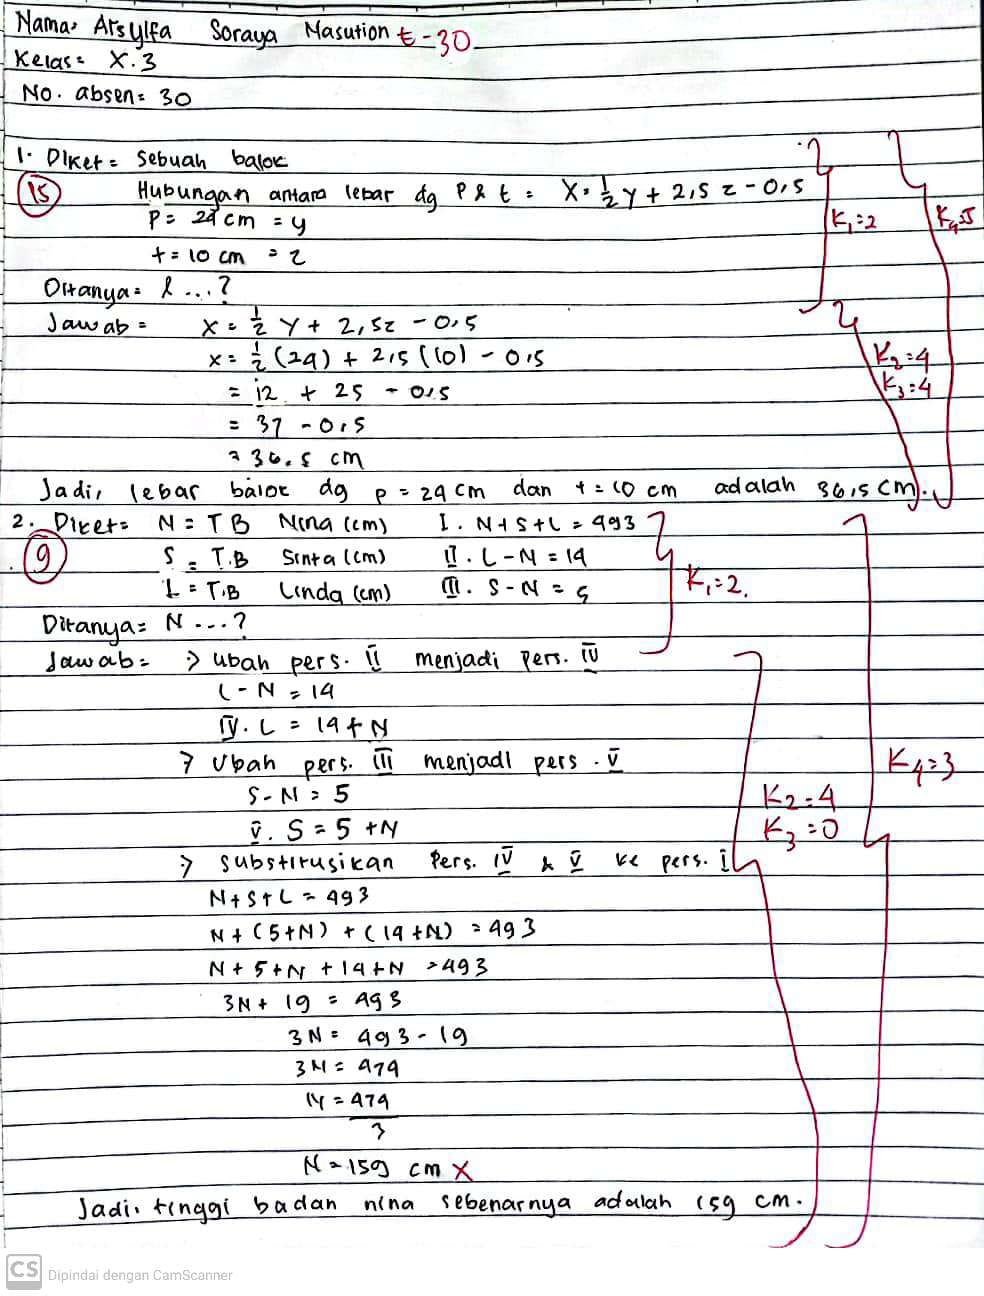 Nama: Arsylfa Soraya Nasution E-30
Kelas: X.3
No. absen: 30
1. Diket = Sebuah balok
15
Hubungan antara lebar dg P & t = X = 1/2 Y + 2,5 z - 0,5
P = 24 cm = y
t = 10 cm = z
K1=2
K4=5
Ditanya = l ...?
Jawab = X = 1/2 Y + 2,5z - 0,5
X = 1/2 (24) + 2,5 (10) - 0,5
= 12 + 25 - 0,5
K2=4
K3=4
= 37 - 0,5
= 36,5 cm
Jadi, lebar balok dg p = 24 cm dan t = 10 cm adalah 36,5 cm.
2. Diket = N = T B Nina (cm) I. N+S+L = 493
9
S = T.B Sinta (cm) II. L-N = 14
L = T.B Linda (cm) III. S-N = 5
K1=2.
Ditanya = N ...?
Jawab = > Ubah pers. II menjadi Pers. IV
L-N = 14
IV. L = 14+N
> Ubah pers. III menjadi pers. V
S-N = 5
V. S = 5+N
K2=4
K3=0
K4=3
> Substitusikan Pers. IV & V ke pers. I
N+S+L = 493
N + (5+N) + (14+N) = 493
N + 5+N + 14+N = 493
3N + 19 = 493
3N = 493 - 19
3N = 474
N = 474
3
N = 159 cm X
Jadi, tinggi badan nina sebenarnya adalah 159 cm.
CS Dipindai dengan CamScanner